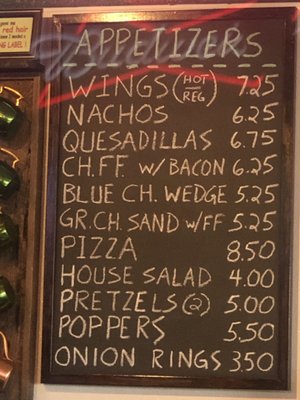 gave me
red hair
because I needed a
NG LABEL!
APPETIZERS
WINGS (HOT REG) 7.25
NACHOS 6.25
QUESADILLAS 6.75
CH.FF. W/ BACON 6.25
BLUE CH. WEDGE 5.25
GR.CH. SAND W/FF 5.25
PIZZA 8.50
HOUSE SALAD 4.00
PRETZELS (2) 5.00
POPPERS 5.50
ONION RINGS 3.50